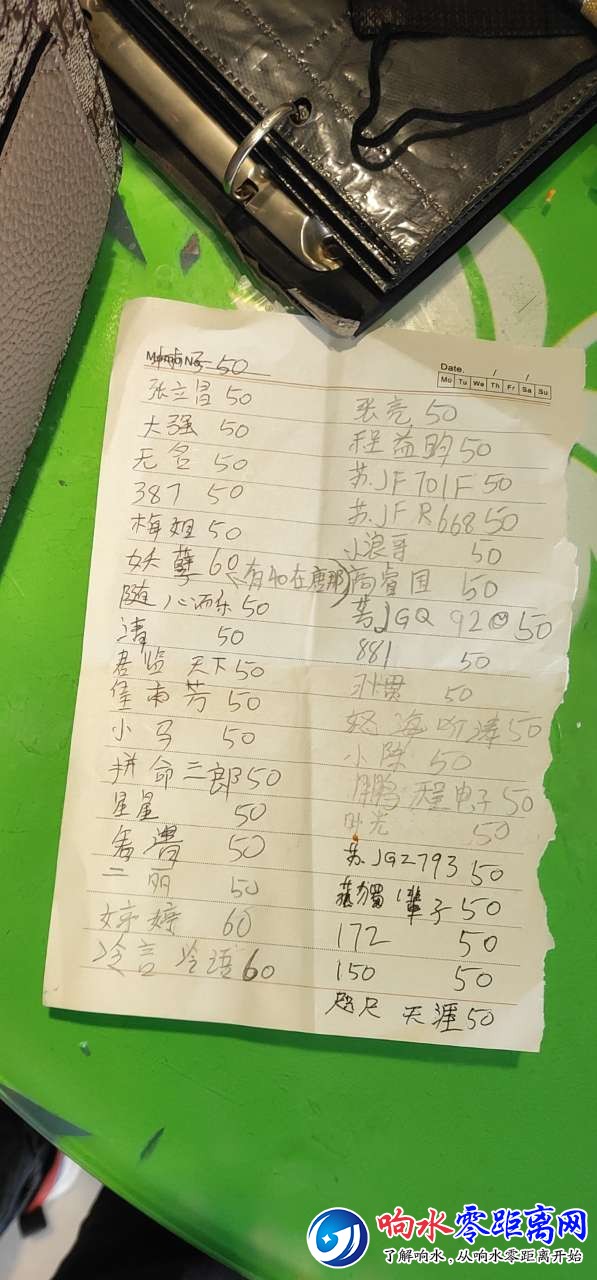 Memo No.
50
Date. / /
Mo Tu We Th Fr Sa Su
张立昌 50
大强 50
无名 50
387 50
梅姐 50
妖孽 60
有40在唐那
随心而乐 50
清 50
君临天下 50
芳 50
小马 50
拼命三郎 50
星星 50
50
二丽 50
婷婷 60
冷言冷语 60
张亮 50
程益昀 50
苏JF701F 50
苏JFR668 50
小浪哥 50
高睿国 50
苏JGQ92 50
881 50
50
怒海听涛 50
小陈 50
鹏程电子 50
时光 50
苏JGZ793 50
一辈子 50
172 50
150 50
咫尺天涯 50
响水零距离网
了解响水,从响水零距离开始